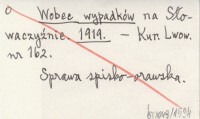 o Wobec wypadków na Sło-
waczyźnie 1919. – Kur. Lwow.
nr 162.
Sprawa spisko-orawska.